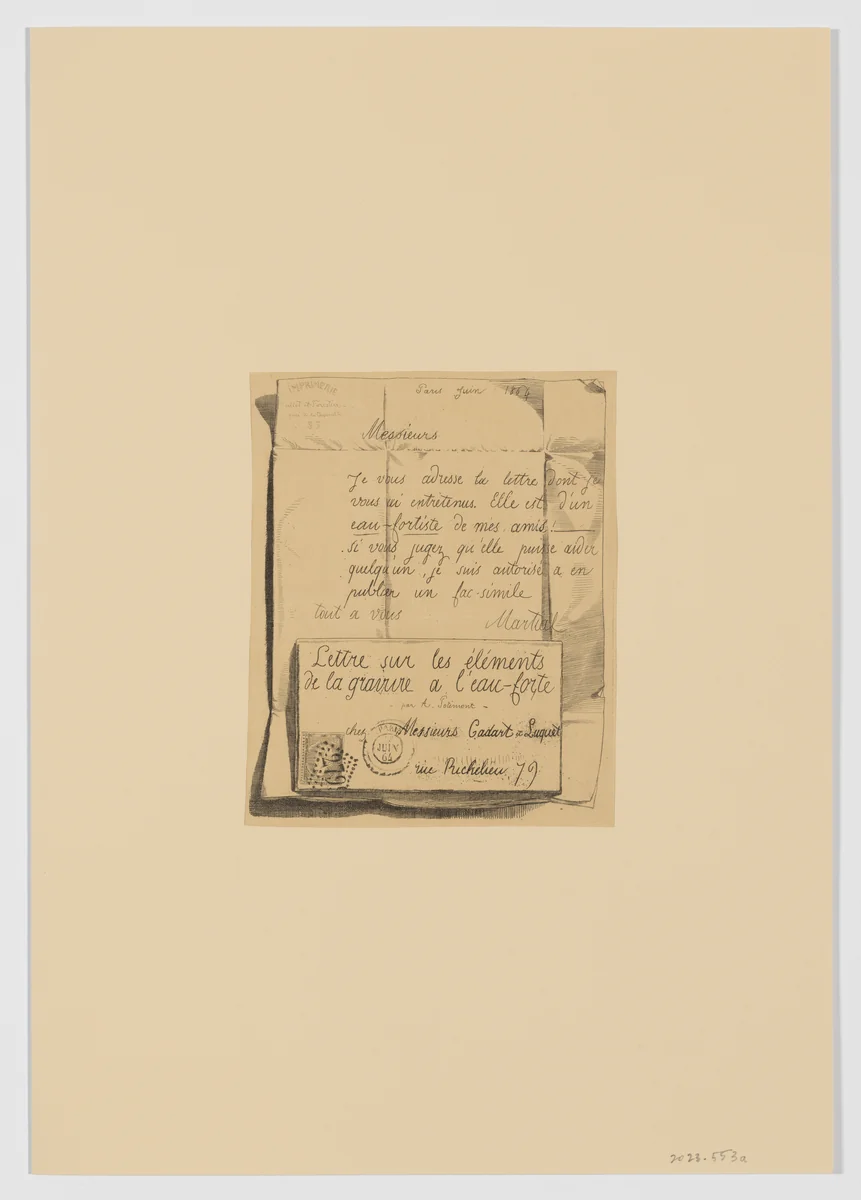 IMPRIMERIE
83
Paris Juin 1864
Messieurs
Je vous adresse la lettre dont je
vous ai entretenus. Elle est d'un
eau-fortiste de mes amis!
si vous jugez qu'elle puisse aider
quelqu'un, je suis autorisé a en
publier un fac-simile
tout a vous Martial
Lettre sur les éléments
de la gravure a l'eau-forte
par A. Potémont
chez Messieurs Cadart & Luquet
PARIS
JUIN
64
rue Richelieu, 79
2023-553a